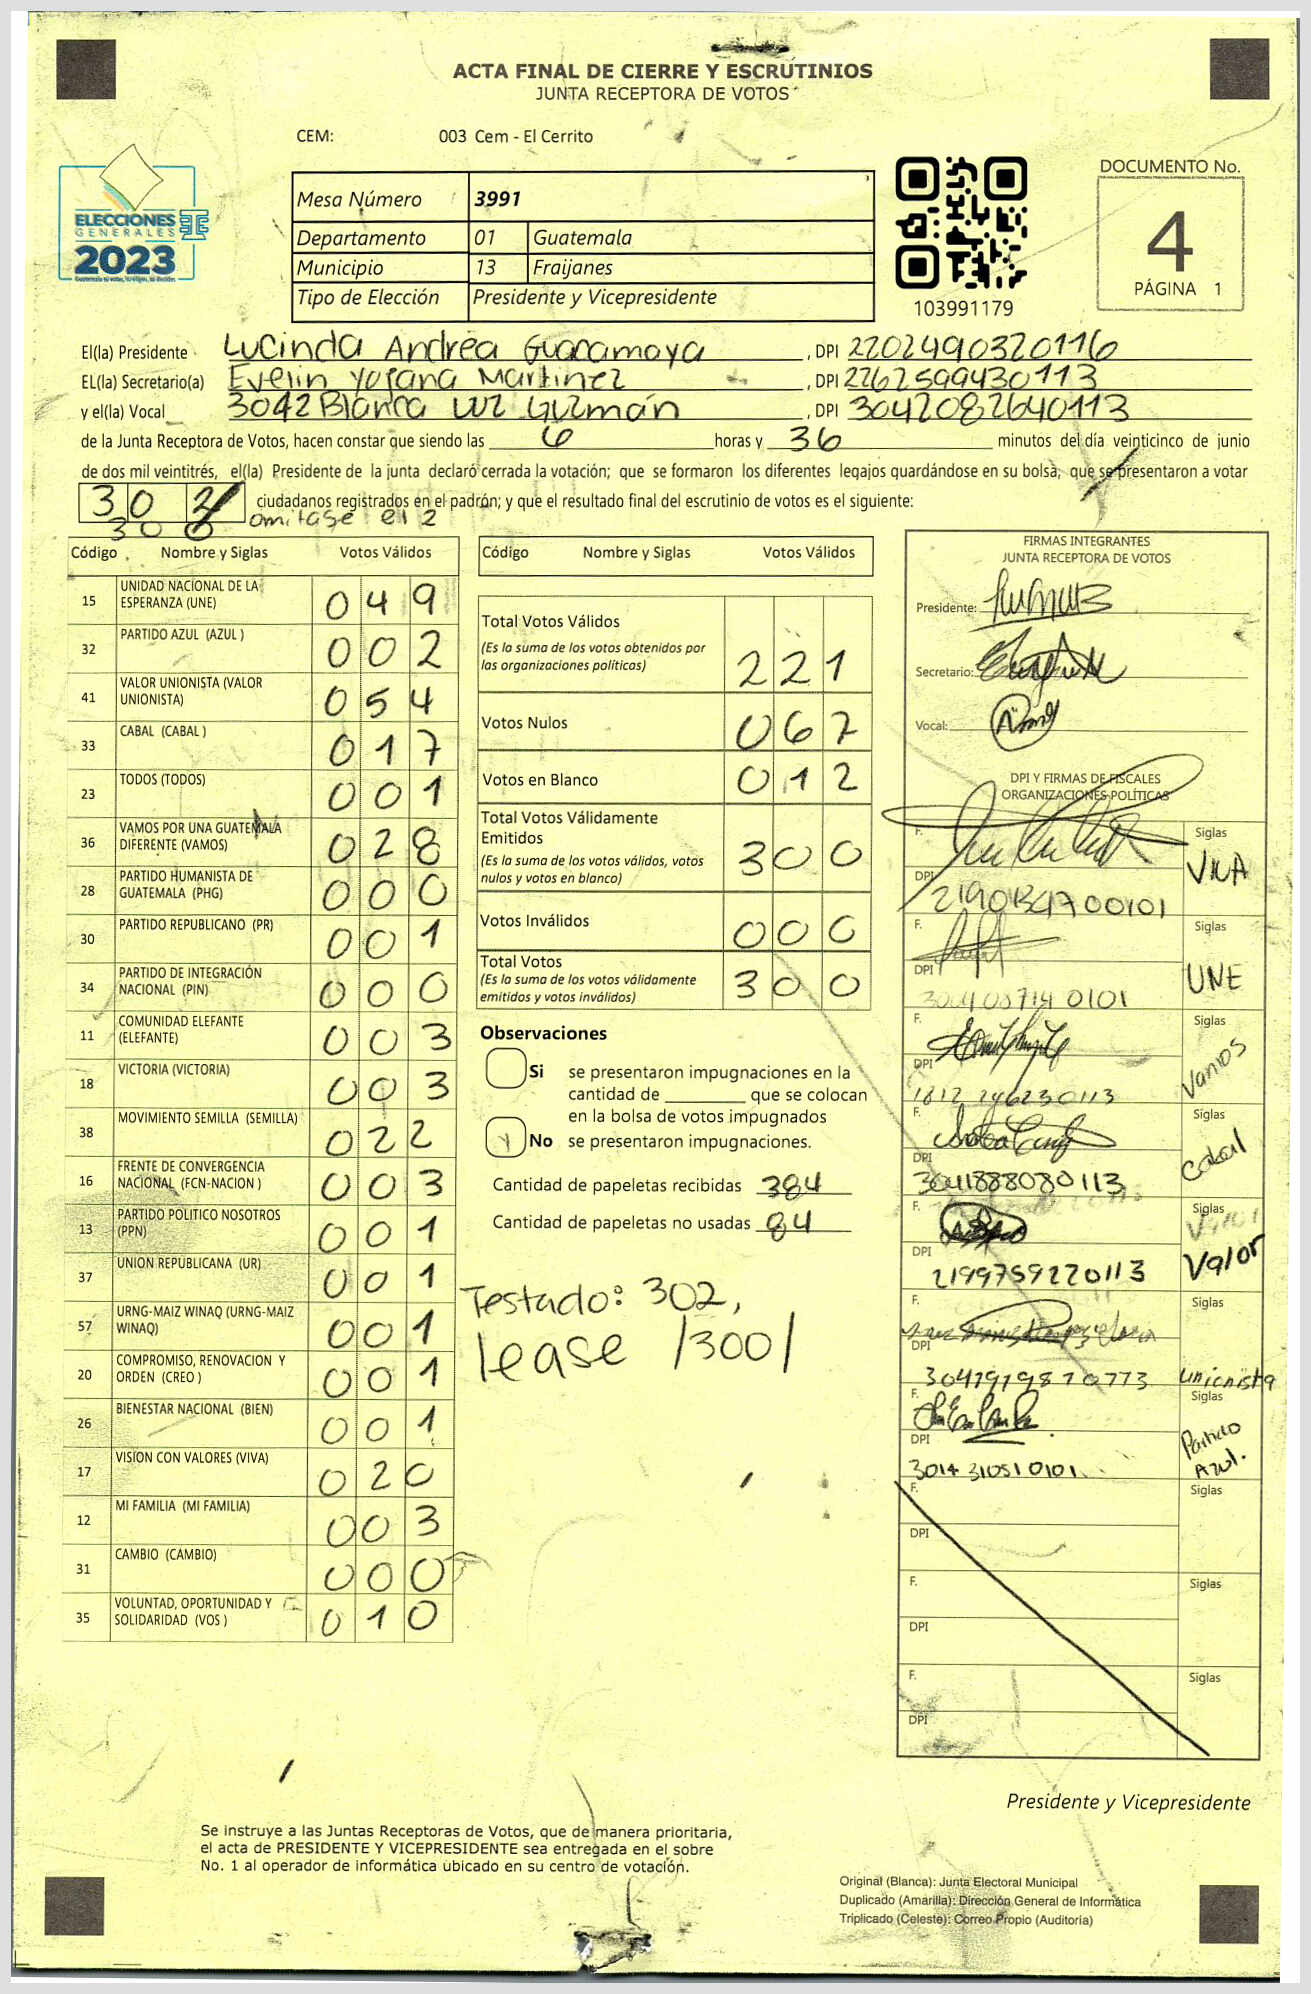 ACTA FINAL DE CIERRE Y ESCRUTINIOS
JUNTA RECEPTORA DE VOTOS
CEM: 003 Cem - El Cerrito
ELECCIONES
GENERALES
2023
Mesa Número 3991
Departamento 01 Guatemala
Municipio 13 Fraijanes
Tipo de Elección Presidente y Vicepresidente
103991179
DOCUMENTO No.
4
PÁGINA 1
El(la) Presidente Lucinda Andrea Guacamoya, DPI 2202490320116
EL(la) Secretario(a) Evelin Yosana Martinez, DPI 2262599430113
y el(la) Vocal 3042 Blanca Luz Guzmán, DPI 3042082640113
de la Junta Receptora de Votos, hacen constar que siendo las 6 horas y 36 minutos del día veinticinco de junio
de dos mil veintitrés, el(la) Presidente de la junta declaró cerrada la votación; que se formaron los diferentes legajos guardándose en su bolsa, que se presentaron a votar
302 ciudadanos registrados en el padrón; y que el resultado final del escrutinio de votos es el siguiente:
300 omitase el 2
Código Nombre y Siglas Votos Válidos
15 UNIDAD NACIONAL DE LA ESPERANZA (UNE) 049
32 PARTIDO AZUL (AZUL ) 002
41 VALOR UNIONISTA (VALOR UNIONISTA) 054
33 CABAL (CABAL ) 017
23 TODOS (TODOS) 001
36 VAMOS POR UNA GUATEMALA DIFERENTE (VAMOS) 028
28 PARTIDO HUMANISTA DE GUATEMALA (PHG) 000
30 PARTIDO REPUBLICANO (PR) 001
34 PARTIDO DE INTEGRACIÓN NACIONAL (PIN) 000
11 COMUNIDAD ELEFANTE (ELEFANTE) 003
18 VICTORIA (VICTORIA) 003
38 MOVIMIENTO SEMILLA (SEMILLA) 022
16 FRENTE DE CONVERGENCIA NACIONAL (FCN-NACION ) 003
13 PARTIDO POLITICO NOSOTROS (PPN) 001
37 UNION REPUBLICANA (UR) 001
57 URNG-MAIZ WINAQ (URNG-MAIZ WINAQ) 001
20 COMPROMISO, RENOVACION Y ORDEN (CREO ) 001
26 BIENESTAR NACIONAL (BIEN) 001
17 VISION CON VALORES (VIVA) 020
12 MI FAMILIA (MI FAMILIA) 003
31 CAMBIO (CAMBIO) 000
35 VOLUNTAD, OPORTUNIDAD Y SOLIDARIDAD (VOS ) 010
Código Nombre y Siglas Votos Válidos
Total Votos Válidos 221
(Es la suma de los votos obtenidos por
las organizaciones políticas)
Votos Nulos 067
Votos en Blanco 012
Total Votos Válidamente
Emitidos 300
(Es la suma de los votos válidos, votos
nulos y votos en blanco)
Votos Inválidos 000
Total Votos 300
(Es la suma de los votos válidamente
emitidos y votos inválidos)
Observaciones
Si se presentaron impugnaciones en la
cantidad de ________ que se colocan
en la bolsa de votos impugnados
No se presentaron impugnaciones.
Cantidad de papeletas recibidas 384
Cantidad de papeletas no usadas 84
Testado: 302,
lease /300/
FIRMAS INTEGRANTES
JUNTA RECEPTORA DE VOTOS
Presidente:
Secretario:
Vocal:
DPI Y FIRMAS DE FISCALES
ORGANIZACIONES POLÍTICAS
F. Siglas
VIVA
DPI
F. Siglas
UNE
DPI
F. Siglas
Vamos
DPI 1812 246230113
F. Siglas
Cabal
DPI 3041888080113
F. Siglas
Valor
DPI 2199759220113
F. Siglas
DPI
Unionista
F. Siglas
Partido
Azul.
DPI 3014310510101
F. Siglas
DPI
F. Siglas
DPI
F. Siglas
DPI
Presidente y Vicepresidente
Se instruye a las Juntas Receptoras de Votos, que de manera prioritaria,
el acta de PRESIDENTE Y VICEPRESIDENTE sea entregada en el sobre
No. 1 al operador de informática ubicado en su centro de votación.
Original (Blanca): Junta Electoral Municipal
Duplicado (Amarilla): Dirección General de Informática
Triplicado (Celeste): Correo Propio (Auditoria)